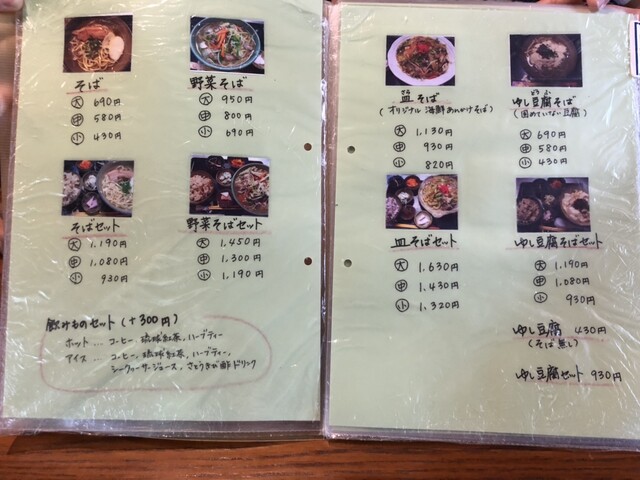 そば
大 690円
中 580円
小 430円
野菜そば
大 950円
中 800円
小 690円
そばセット
大 1,190円
中 1,080円
小 930円
野菜そばセット
大 1,450円
中 1,300円
小 1,190円
飲けものセット (+300円)
ホット … コーヒー, 琉球紅茶, ハーブティー
アイス … コーヒー, 琉球紅茶, ハーブティー,
シークヮーサージュース, さとうきび酢ドリンク
さら
皿 そば
(オリジナル 海鮮あんかけそば)
大 1,130円
中 930円
小 820円
とうふ
ゆし豆腐そば
(固めていない豆腐)
大 690円
中 580円
小 430円
皿 そばセット
大 1,630円
中 1,430円
小 1,320円
ゆし豆腐そばセット
大 1,190円
中 1,080円
小 930円
ゆし豆腐 430円
(そば無し)
ゆし豆腐セット 930円